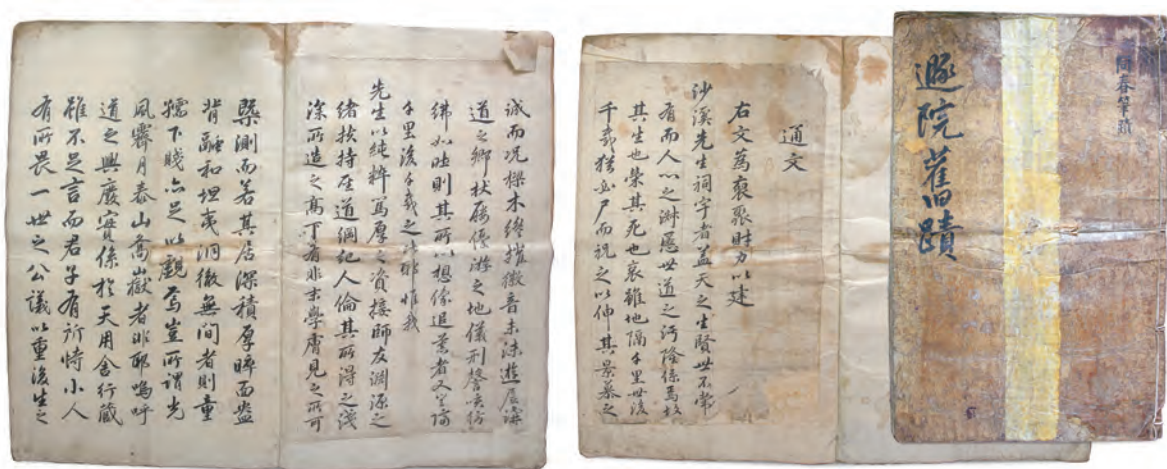 同春筆蹟
遯院舊蹟
通文
右文爲裒聚財力以建
沙溪先生祠宇者盖天之生賢世不常
有而人心之淑慝世道之汚隆係焉故
其生也榮其死也哀雖地隔千里世後
千載猶必尸而祝之以伸其景慕之
誠而况樑木纔摧徽音未沫遊居講
道之鄕杖屨優游之地儀刑謦咳彷
彿如昨則其所以想像追慕者又豈隔
千里後千載之比耶惟我
先生以純粹篤厚之資接師友淵源之
緖扶持聖道綱紀人倫其所得之淺
深所造之高下有非末學膚見之所可
槩測而若其居深積厚睟面盎
背融和坦夷洞徹無間者則童
孺下賤亦足以觀焉豈所謂光
風霽月泰山喬嶽者非耶嗚呼
道之興廢實係於天用舍行藏
雖不足言而君子有所恃小人
有所畏一世之公議以重後生之